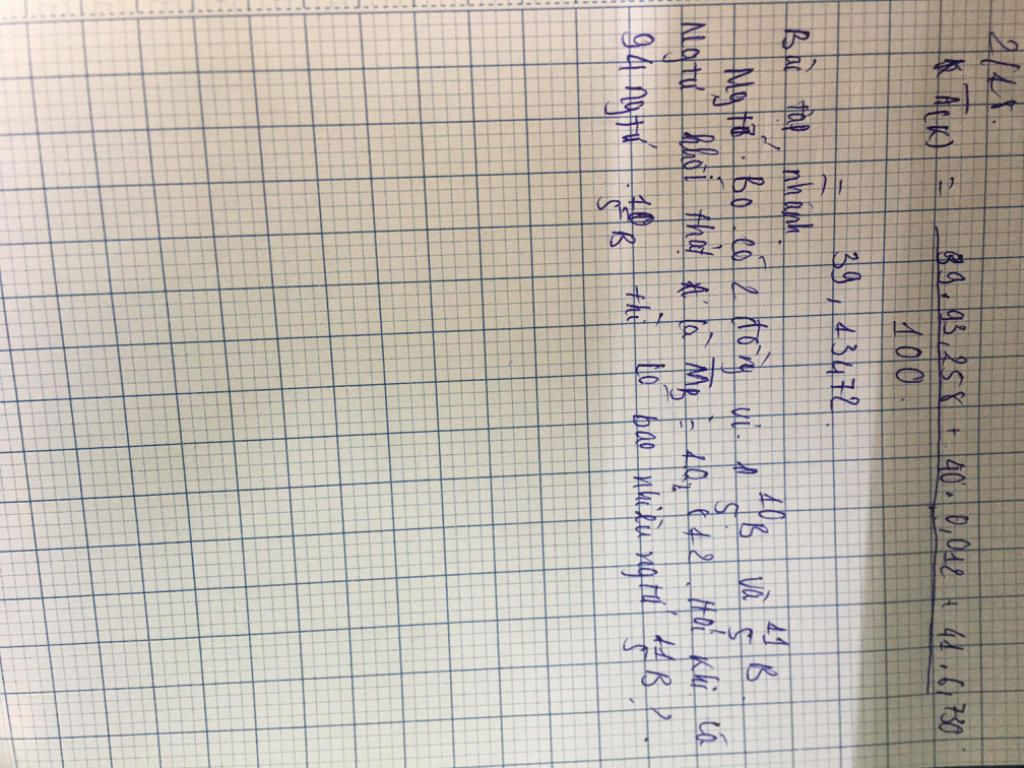 2/28.
A̅(K) = 39.93,258 + 40.0,012 + 41.6,730
100.
= 39,13472.
Bài tập nhanh.
Ngtố Bo có 2 đồng vị ¹⁰₅B và ¹¹₅B.
Ngtử khối là M̅B = 10,812. Hỏi khi có
94 ngtử ¹⁰₅B thì có bao nhiêu ngtử ¹¹₅B?